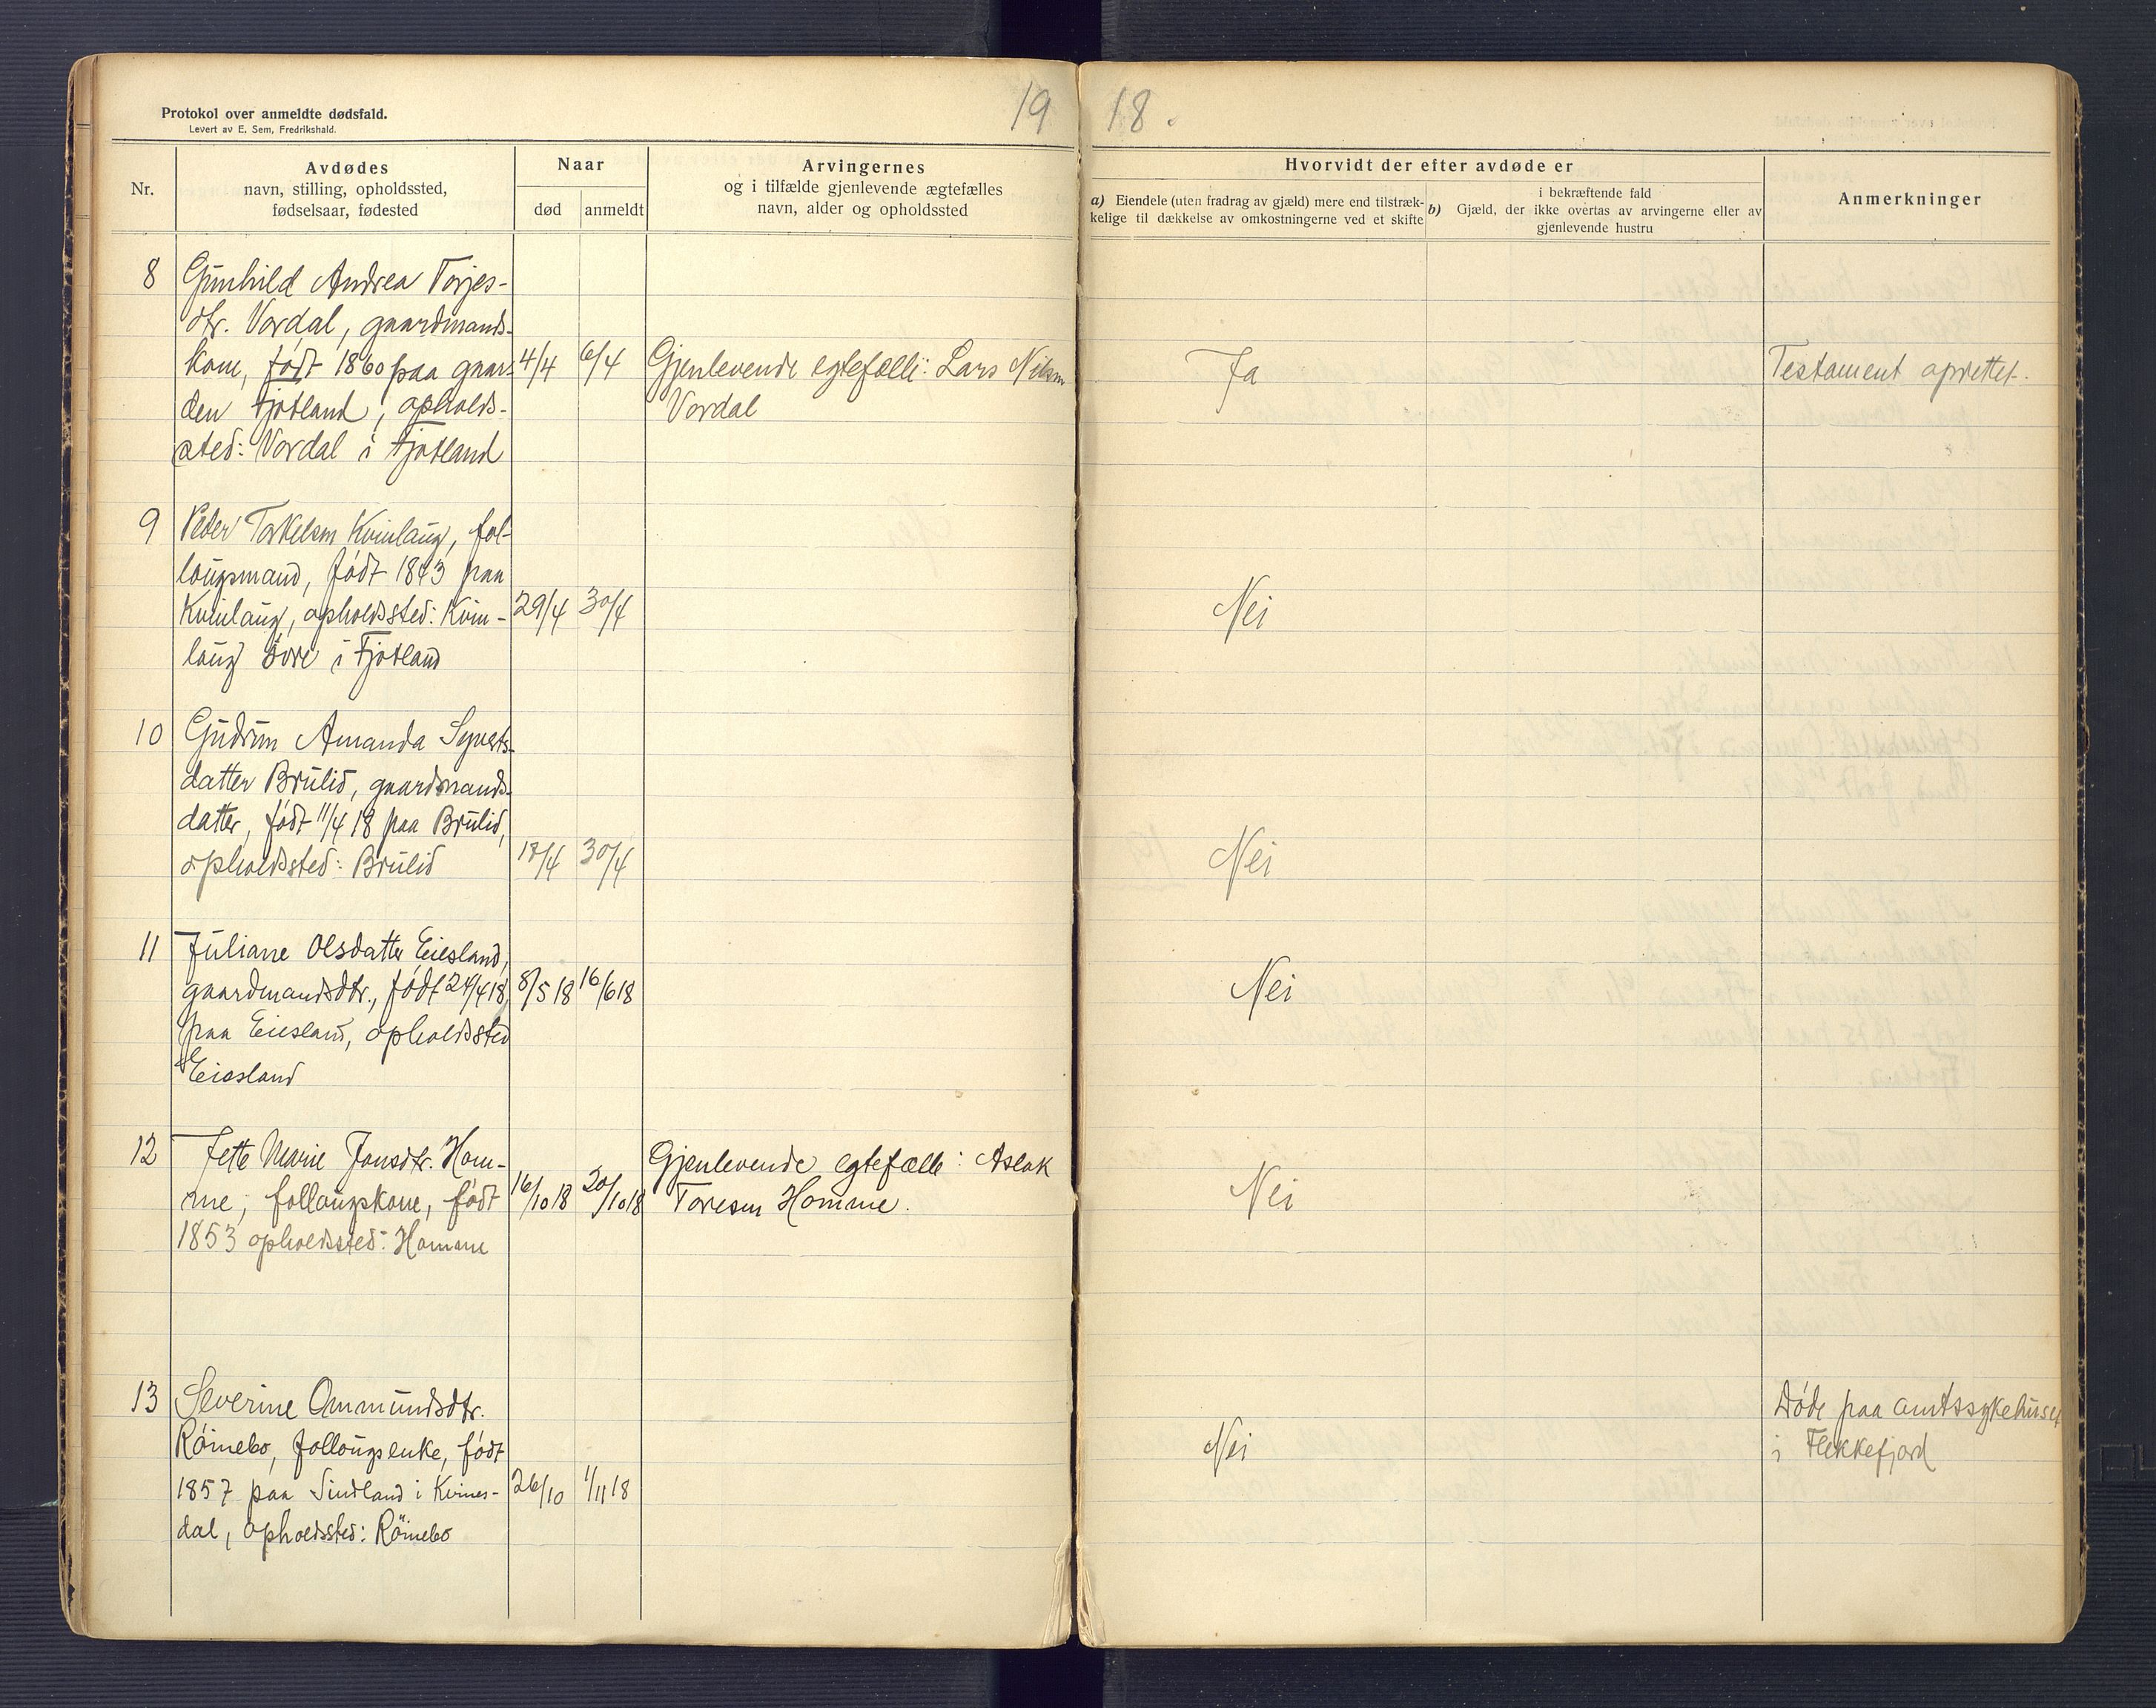 Protokol over anmeldte dødsfald.
Levert av E. Sem, Fredrikshald.
19 18.
Nr.
Avdødes
navn, stilling, opholdssted,
fødselsaar, fødested
Naar
død
anmeldt
Arvingernes
og i tilfælde gjenlevende ægtefælles
navn, alder og opholdssted
Hvorvidt der efter avdøde er
a) Eiendele (uten fradrag av gjæld) mere end tilstræk-
kelige til dækkelse av omkostningerne ved et skifte
b) Gjæld, der
i bekræftende fald
ikke overtas av arvingerne eller av
gjenlevende hustru
Anmerkninger
8
Gunhild Andrea Torjes-
dtr. Vordal, gaardmands-
kone, født 1860 paa gaar-
den Fjotland, opholds-
sted: Vordal i Fjotland
4/4
6/4
Gjenlevende egtefælle: Lars Nilsen
Vordal
Ja
Testament oprettet.
9
Peder Torkelsen Kvinlaug, fol-
lougsmand, født 1843 paa
Kvinlaug, opholdssted: Kvin-
laug övre i Fjotland
29/4
30/4
Nei
10
Gudrun Amanda Syverts-
datter Brulid, gaardmands-
datter, født 11/4 18 paa Brulid,
opholdssted: Brulid
18/4
30/4
Nei
11
Juliane Olsdatter Eiesland,
gaardmandsdtr., født 24/4 18,
paa Eiesland, opholdssted
Eiesland
8/5 18
16/6 18
Nei
12
Jette Marie Jonsdtr. Hom-
me, follougskone, født
1853 opholdssted: Homme
16/10 18
20/10 18
Gjenlevende egtefælle: Aslak
Toresen Homme.
Nei
13
Severine Ommundsdtr.
Röinebo, follougsenke, født
1857 paa Sindland i Kvines-
dal, opholdssted: Röinebo
26/10
1/11 18
Nei
Døde paa amtssykehuset
i Flekkefjord